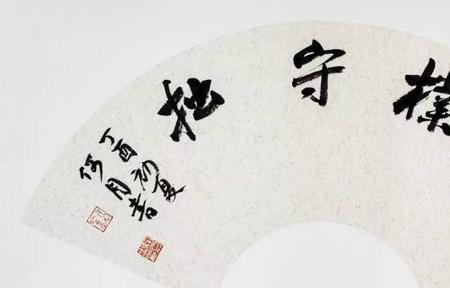 樸守拙
丁酉初夏
何月書